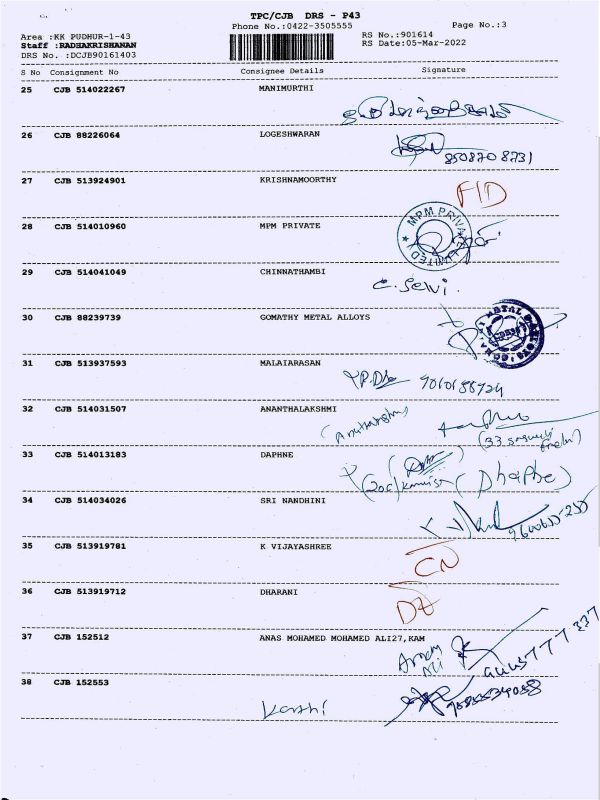 TPC/CJB DRS - P43
Phone No.:0422-3505555
Page No.:3
Area :KK PUDHUR-1-43
RS No.:901614
Staff :RADHAKRISHANAN
RS Date:05-Mar-2022
DRS No. :DCJB90161403
S No Consignment No Consignee Details Signature
25 CJB 514022267 MANIMURTHI
26 CJB 88226064 LOGESHWARAN
8508708731
27 CJB 513924901 KRISHNAMOORTHY
FID
28 CJB 514010960 MPM PRIVATE
MPM PRIVATE LIMITED
29 CJB 514041049 CHINNATHAMBI
C. Selvi.
30 CJB 88239739 GOMATHY METAL ALLOYS
31 CJB 513937593 MALAIARASAN
32 CJB 514031507 ANANTHALAKSHMI
33 CJB 514013183 DAPHNE
(Dhaphe)
34 CJB 514034026 SRI NANDHINI
35 CJB 513919781 K VIJAYASHREE
CN
36 CJB 513919712 DHARANI
DZ
37 CJB 152512 ANAS MOHAMED MOHAMED ALI27,KAM
38 CJB 152553